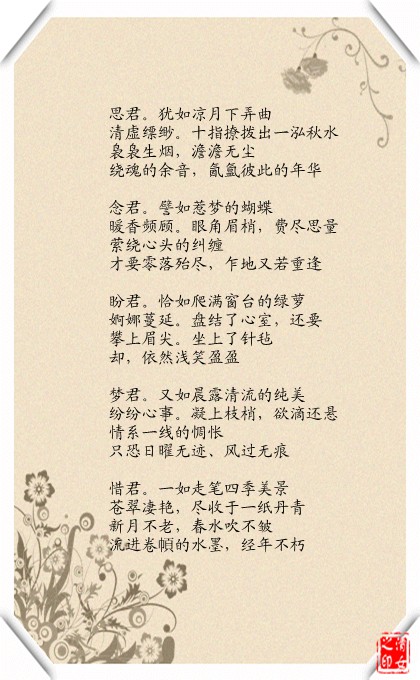 思君。犹如凉月下弄曲
清虚缥缈。十指撩拨出一泓秋水
袅袅生烟，澹澹无尘
绕魂的余音，氤氲彼此的年华
念君。譬如惹梦的蝴蝶
暖香频顾。眼角眉梢，费尽思量
萦绕心头的纠缠
才要零落殆尽，乍地又若重逢
盼君。恰如爬满窗台的绿萝
婀娜蔓延。盘结了心室，还要
攀上眉尖。坐上了针毡
却，依然浅笑盈盈
梦君。又如晨露清流的纯美
纷纷心事。凝上枝梢，欲滴还悬
情系一线的惆怅
只恐日曜无迹、风过无痕
惜君。一如走笔四季美景
苍翠凄艳，尽收于一纸丹青
新月不老，春水吹不皱
流进卷帧的水墨，经年不朽